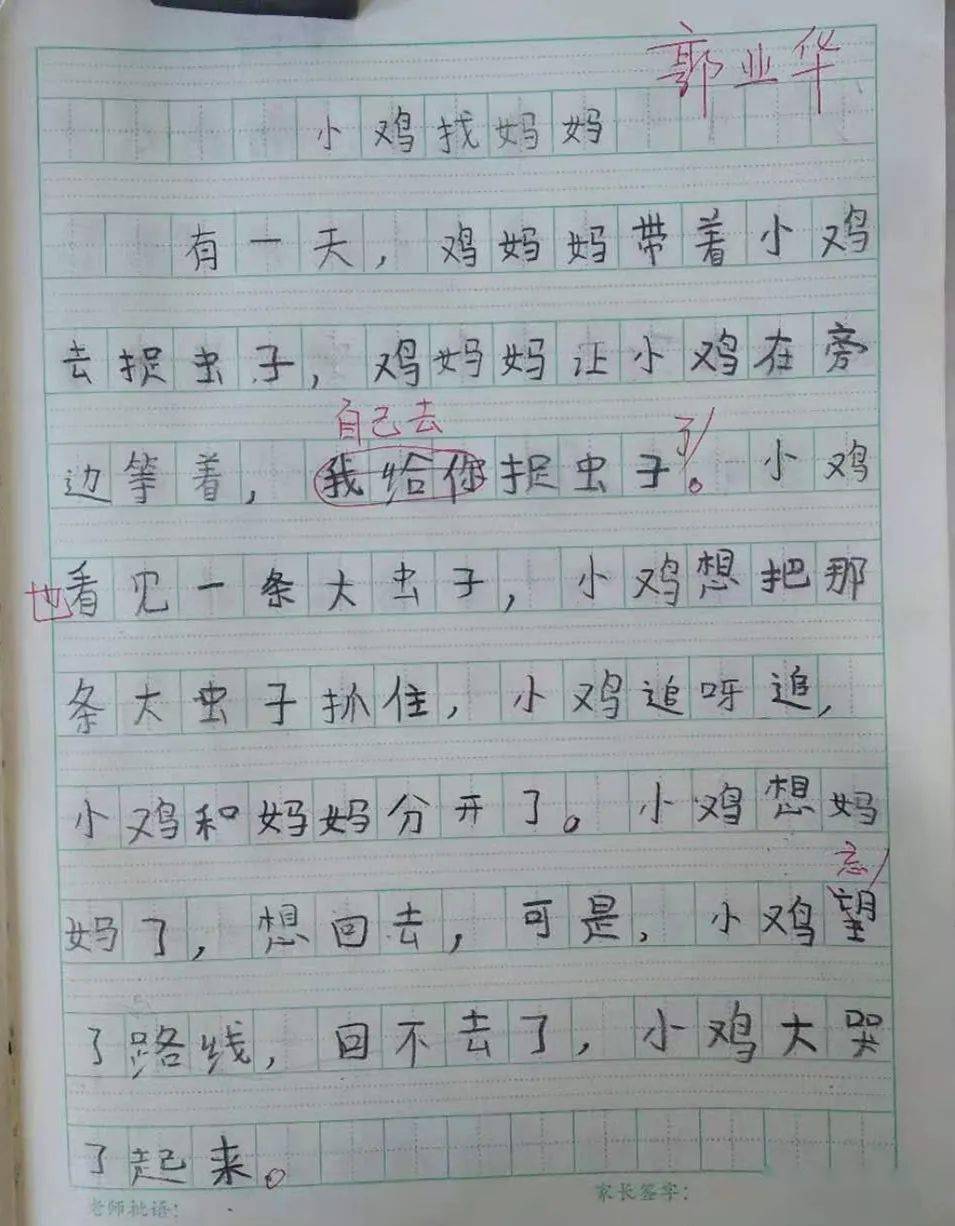 郭业华
小鸡找妈妈
有一天，鸡妈妈带着小鸡
去捉虫子，鸡妈妈让小鸡在旁
自己去
了
边等着，我给你捉虫子。小鸡
也看见一条大虫子，小鸡想把那
条大虫子抓住，小鸡追呀追，
小鸡和妈妈分开了。小鸡想妈
忘
妈了，想回去，可是，小鸡望
了路线，回不去了，小鸡大哭
了起来。
老师批语： 家长签字：